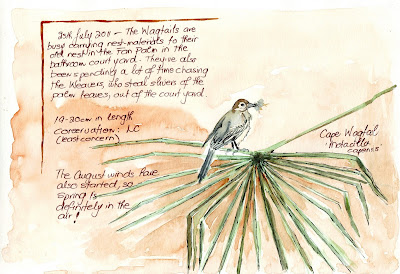 July 2011 - The Wagtails are
busy carrying nest-materials to their
old nest in the Fan Palm in the
bathroom courtyard. They've also
been spending a lot of time chasing
the Weavers, who steal slivers of the
palm leaves, out of the courtyard.
19-20cm in length
Conservation: LC
(least concern)
The August winds have
also started, so
Spring is
definitely in the
air!
Cape Wagtail
'Motacilla
capensis'